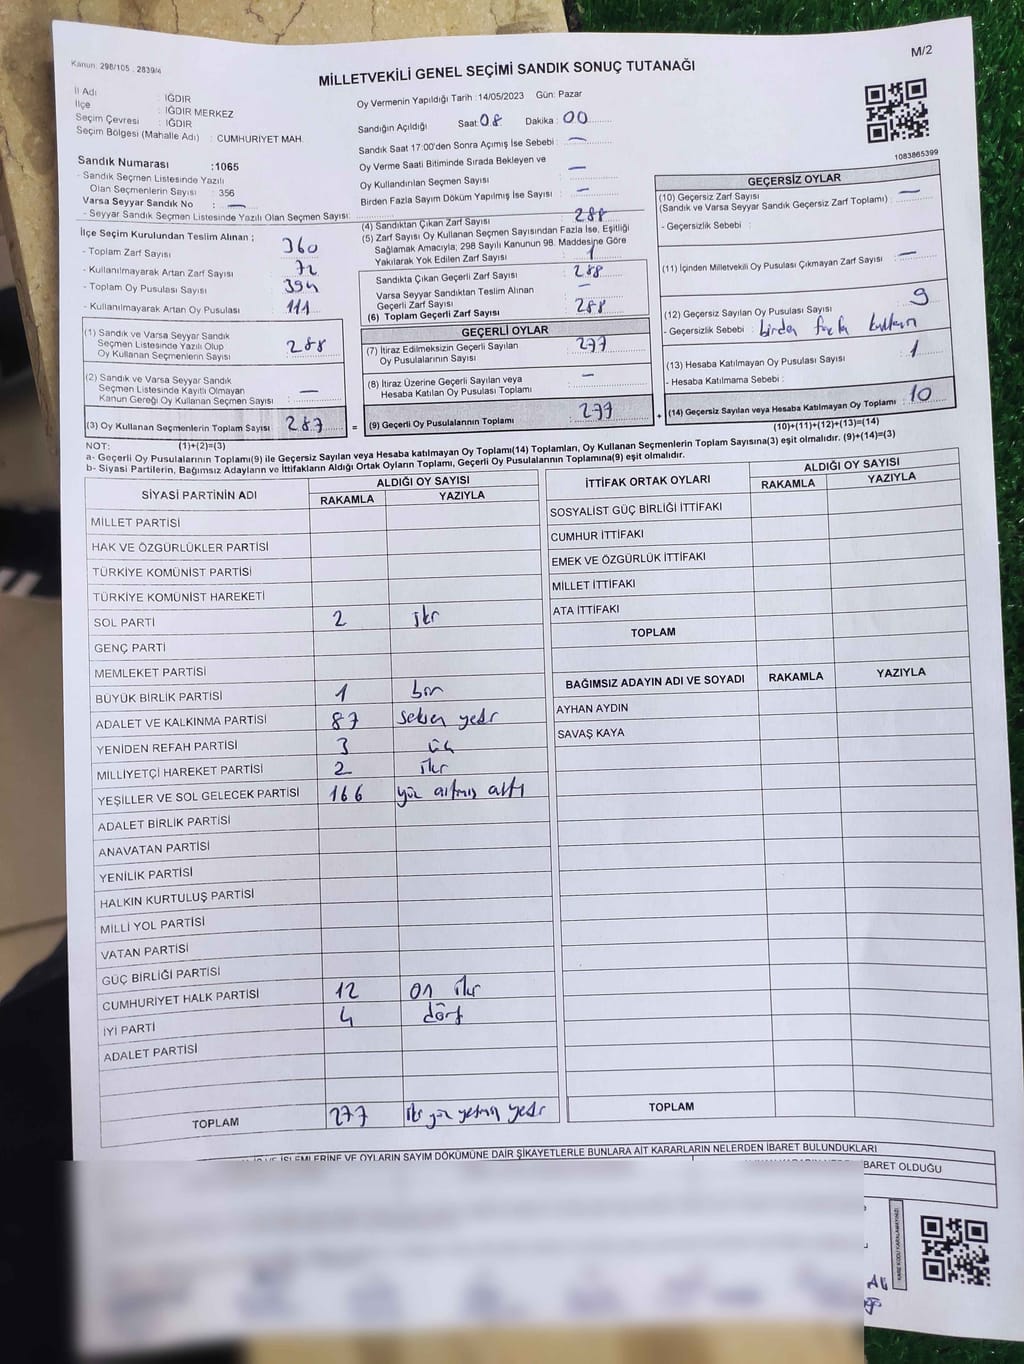 Kanun: 298/105 . 2839/4
M/2
MİLLETVEKİLİ GENEL SEÇİMİ SANDIK SONUÇ TUTANAĞI
İl Adı : IĞDIR
İlçe : IĞDIR MERKEZ
Seçim Çevresi : IĞDIR
Seçim Bölgesi (Mahalle Adı) : CUMHURİYET MAH.
Sandık Numarası :1065
- Sandık Seçmen Listesinde Yazılı
Olan Seçmenlerin Sayısı : 356
Varsa Seyyar Sandık No : —
- Seyyar Sandık Seçmen Listesinde Yazılı Olan Seçmen Sayısı:
Oy Vermenin Yapıldığı Tarih :14/05/2023 Gün: Pazar
Sandığın Açıldığı Saat: 08 Dakika : 00
Sandık Saat 17:00'den Sonra Açımış İse Sebebi : —
Oy Verme Saati Bitiminde Sırada Bekleyen ve
Oy Kullandırılan Seçmen Sayısı : —
Birden Fazla Sayım Döküm Yapılmış İse Sayısı : —
1083865399
İlçe Seçim Kurulundan Teslim Alınan ;
- Toplam Zarf Sayısı : 360
- Kullanılmayarak Artan Zarf Sayısı : 72
- Toplam Oy Pusulası Sayısı : 394
- Kullanılmayarak Artan Oy Pusulası : 111
(1) Sandık ve Varsa Seyyar Sandık
Seçmen Listesinde Yazılı Olup
Oy Kullanan Seçmenlerin Sayısı : 288
(2) Sandık ve Varsa Seyyar Sandık
Seçmen Listesinde Kayıtlı Olmayan
Kanun Gereği Oy Kullanan Seçmen Sayısı : —
(3) Oy Kullanan Seçmenlerin Toplam Sayısı : 287
(1)+(2)=(3)
(4) Sandıktan Çıkan Zarf Sayısı : 288
(5) Zarf Sayısı Oy Kullanan Seçmen Sayısından Fazla İse, Eşitliği
Sağlamak Amacıyla; 298 Sayılı Kanunun 98. Maddesine Göre
Yakılarak Yok Edilen Zarf Sayısı : 1
Sandıkta Çıkan Geçerli Zarf Sayısı : 288
Varsa Seyyar Sandıktan Teslim Alınan
Geçerli Zarf Sayısı : —
(6) Toplam Geçerli Zarf Sayısı : 288
GEÇERLİ OYLAR
(7) İtiraz Edilmeksizin Geçerli Sayılan
Oy Pusulalarının Sayısı : 277
(8) İtiraz Üzerine Geçerli Sayılan veya
Hesaba Katılan Oy Pusulası Toplamı : —
= (9) Geçerli Oy Pusulalarının Toplamı : 277
GEÇERSİZ OYLAR
(10) Geçersiz Zarf Sayısı : —
(Sandık ve Varsa Seyyar Sandık Geçersiz Zarf Toplamı) :
- Geçersizlik Sebebi :
(11) İçinden Milletvekili Oy Pusulası Çıkmayan Zarf Sayısı : —
(12) Geçersiz Sayılan Oy Pusulası Sayısı : 9
- Geçersizlik Sebebi : birden fazla
(13) Hesaba Katılmayan Oy Pusulası Sayısı : 1
- Hesaba Katılmama Sebebi :
+ (14) Geçersiz Sayılan veya Hesaba Katılmayan Oy Toplamı : 10
(10)+(11)+(12)+(13)=(14)
NOT:
a- Geçerli Oy Pusulalarının Toplamı(9) ile Geçersiz Sayılan veya Hesaba katılmayan Oy Toplamı(14) Toplamları, Oy Kullanan Seçmenlerin Toplam Sayısına(3) eşit olmalıdır. (9)+(14)=(3)
b- Siyasi Partilerin, Bağımsız Adayların ve İttifakların Aldığı Ortak Oyların Toplamı, Geçerli Oy Pusulalarının Toplamına(9) eşit olmalıdır.
SİYASİ PARTİNİN ADI
ALDIĞI OY SAYISI
RAKAMLA YAZIYLA
MİLLET PARTİSİ
HAK VE ÖZGÜRLÜKLER PARTİSİ
TÜRKİYE KOMÜNİST PARTİSİ
TÜRKİYE KOMÜNİST HAREKETİ
SOL PARTİ 2 iki
GENÇ PARTİ
MEMLEKET PARTİSİ
BÜYÜK BİRLİK PARTİSİ 1 bir
ADALET VE KALKINMA PARTİSİ 87 seksen yedi
YENİDEN REFAH PARTİSİ 3 üç
MİLLİYETÇİ HAREKET PARTİSİ 2 iki
YEŞİLLER VE SOL GELECEK PARTİSİ 166 yüz altmış altı
ADALET BİRLİK PARTİSİ
ANAVATAN PARTİSİ
YENİLİK PARTİSİ
HALKIN KURTULUŞ PARTİSİ
MİLLİ YOL PARTİSİ
VATAN PARTİSİ
GÜÇ BİRLİĞİ PARTİSİ
CUMHURİYET HALK PARTİSİ 12 on iki
İYİ PARTİ 4 dört
ADALET PARTİSİ
TOPLAM 277 iki yüz yetmiş yedi
İTTİFAK ORTAK OYLARI
ALDIĞI OY SAYISI
RAKAMLA YAZIYLA
SOSYALİST GÜÇ BİRLİĞİ İTTİFAKI
CUMHUR İTTİFAKI
EMEK VE ÖZGÜRLÜK İTTİFAKI
MİLLET İTTİFAKI
ATA İTTİFAKI
TOPLAM
BAĞIMSIZ ADAYIN ADI VE SOYADI RAKAMLA YAZIYLA
AYHAN AYDIN
SAVAŞ KAYA
TOPLAM
İŞLEMLERİNE VE OYLARIN SAYIM DÖKÜMÜNE DAİR ŞİKAYETLERLE BUNLARA AİT KARARLARIN NELERDEN İBARET BULUNDUKLARI
İBARET OLDUĞU
KARE KODU KARALAMAYINIZ